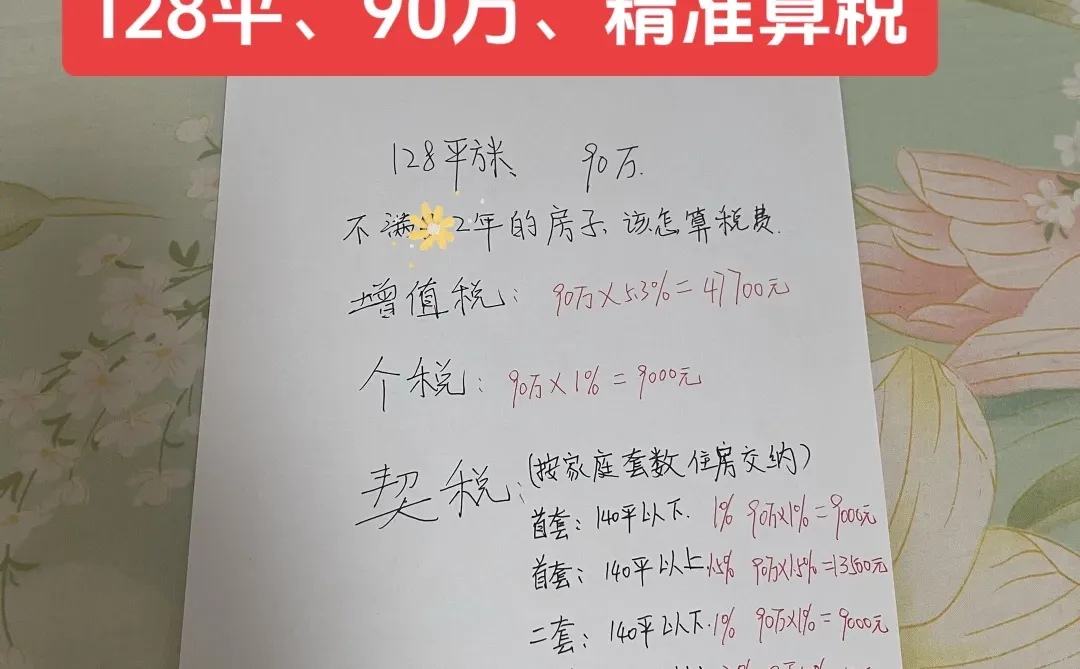 128平、90万、精准算税
128平方米、 90万.
不满2年的房子、该怎算税费.
增值税: 90万×5.3%=47700元
个税: 90万×1%=9000元
契税: (按家庭套数住房交纳)
首套: 140平以下. 1% 90万×1%=9000元
首套: 140平以上 1.5% 90万×1.5%=13500元
二套: 140平以下. 1% 90万×1%=9000元